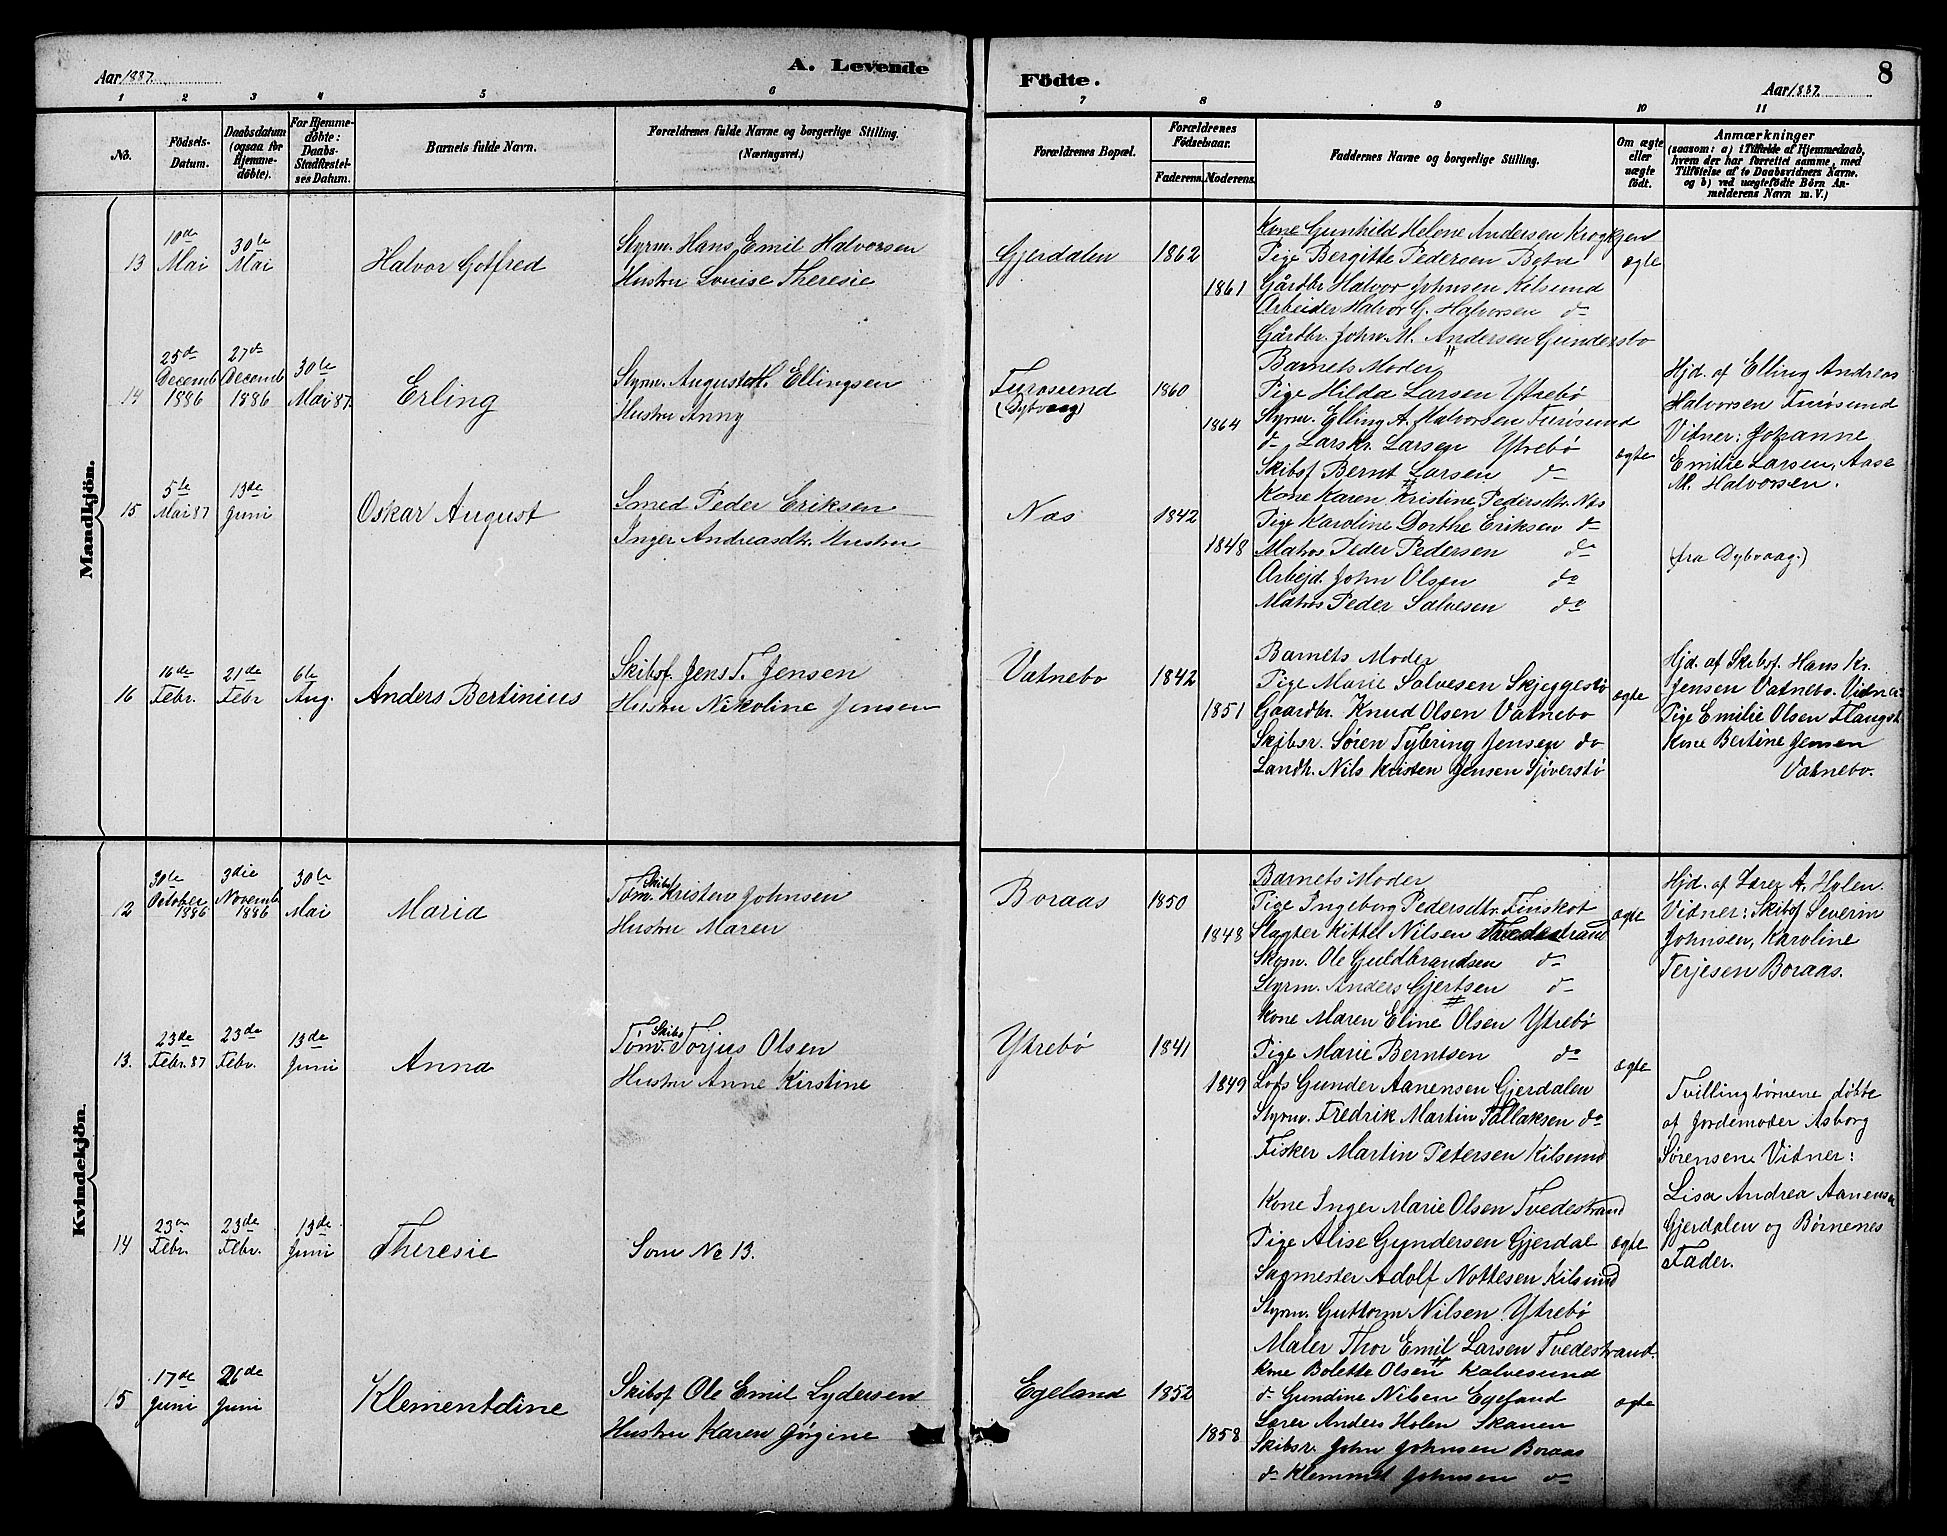 Aar 1887.
A. Levende
Födte.
Aar 1887.
8
1 2 3 4 5 6 7 8 9 10 11
No.
Födsels-
Datum.
Daabsdatum
(ogsaa for
Hjemme-
døbte).
For Hjemme-
døbte:
Daabs-
Stadfæstel-
ses Datum.
Barnets fulde Navn.
Forældrenes fulde Navne og borgerlige Stilling.
(Næringsvei.)
Forældrenes Bopæl.
Forældrenes
Födselsaar.
Faderens. Moderens.
Faddernes Navne og borgerlige Stilling.
Om ægte
eller
uægte
födt.
Anmærkninger
(saasom: a) i Tilfælde af Hjemmedaab,
hvem der har forrettet samme, med
Tilföielse af to Daabsvidners Navne.
og b) ved uægtefödte Börn An-
melderens Navn m. V.)
Mandkjön.
13
10de
Mai
30te
Mai
Halvor Gotfred
Styrm. Hans Emil Halvorsen
Hustru Louise Theresie
Gjerdalen
1862
1861
Kone Gunhild Helene Andersen Krogkjen
Pige Bergitte Pedersen Botne
Gårdbr Halvor Johnsen Kilsund
Arbeider Halvor G. Halvorsen do
Gårdbr. John M. Andersen Gundersbo
ægte
14
25de
Decemb
1886
27de
Decemb
1886
30te
Mai 87.
Erling
Styrm. August H. Ellingsen
Hustru Anny
Furøsund
(Dybvaag)
1860
1864
Barnets Moder
Pige Hilda Larsen Ytrebø
Styrm. Elling A. Halvorsen Furøsund
do Lars Kr. Larsen Ytrebø
Skibsf Bernt Larsen do
ægte
Hjd. af Elling Andreas
Halvorsen Furøsund
Vidner: Johanne
Emilie Larsen, Aase
M. Halvorsen.
15
5te
Mai 87
13de
Juni
Oskar August
Smed Peder Eriksen
Inger Andreasdtr. Hustru
Næs
1842
1848
Kone Karen Kristine Pedersdtr Næs
Pige Karoline Dorthe Eriksen do
Matros Peder Pedersen do
Arbejd. John Olsen do
Matros Peder Salvesen do
(fra Dybvaag.)
16
16de
Febr.
21de
Febr
6te
Aug.
Anders Bertinius
Skibsf. Jens T. Jensen
Hustru Nikoline Jensen
Vatnebo
1842
1851
Barnets Moder
Pige Marie Salvesen Skjeggestø
Gaardbr. Knud Olsen Vatnebo
Skibsr. Søren Tybring Jensen do
Landh. Nils Kristen Jensen Sjöverstø
ægte
Hjd. af Skibsf. Hans Kr.
Jensen Vatnebo. Vidner
Pige Emilie Olsen Flangst.
Kone Bertine Jensen
Vatnebo.
Kvindekjön.
12
30te
October
1886
3die
Novemb
1886
30te
Mai
Maria
Skibs
Tøm. Kristen Johnsen
Hustru Maren
Boraas
1850
1848
Barnets Moder
Pige Ingeborg Pedersdtr. Finskot
Slagter Kittel Nilsen Tvedestrand
Skom. Ole Guldbrandsen do
Styrm. Anders Gjertsen do
ægte
Hjd. af Lærer A. Holen.
Vidner: Skibsf Severin
Johnsen, Karoline
Terjesen Boraas.
13.
23de
Febr. 87
23de
Febr.
13de
Juni
Anna
Skibs
Tøm. Torjus Olsen
Hustru Anne Kirstine
Ytrebø
1841
1849
Kone Maren Eline Olsen Ytrebø
Pige Marie Berntsen do
Lods Gunder Aanensen Gjerdalen
Styrm. Fredrik Martin Tallaksen do
Fisker Martin Petersen Kilsund
ægte
Tvillingbørnene døbte
af Jordemoder Asborg
Sørensen. Vidner:
Lisa Andrea Aanensen
Gjerdalen og Børnenes
Fader.
14
23de
Febr.
23de
Febr.
13de
Juni
Theresie
Som No 13.
Kone Inger Marie Olsen Tvedestrand
Pige Alise Gundersen Gjerdal
Sagmester Adolf Nottesen Kilsund
Styrm. Guttorm Nilsen Ytrebø
Maler Thor Emil Larsen Tvedestrand.
ægte
15
17de
Juni
26de
Juni
Klementdine
Skibsf Ole Emil Lydersen
Hustru Karen Jørgine
Egeland
1852
1858
Kone Bolette Olsen Kalvesund
do Gundine Nilsen Egeland
Lærer Anders Holen Skanen
Skibsr. John Johnsen Boraas
do Klemmet Johnsen do
ægte